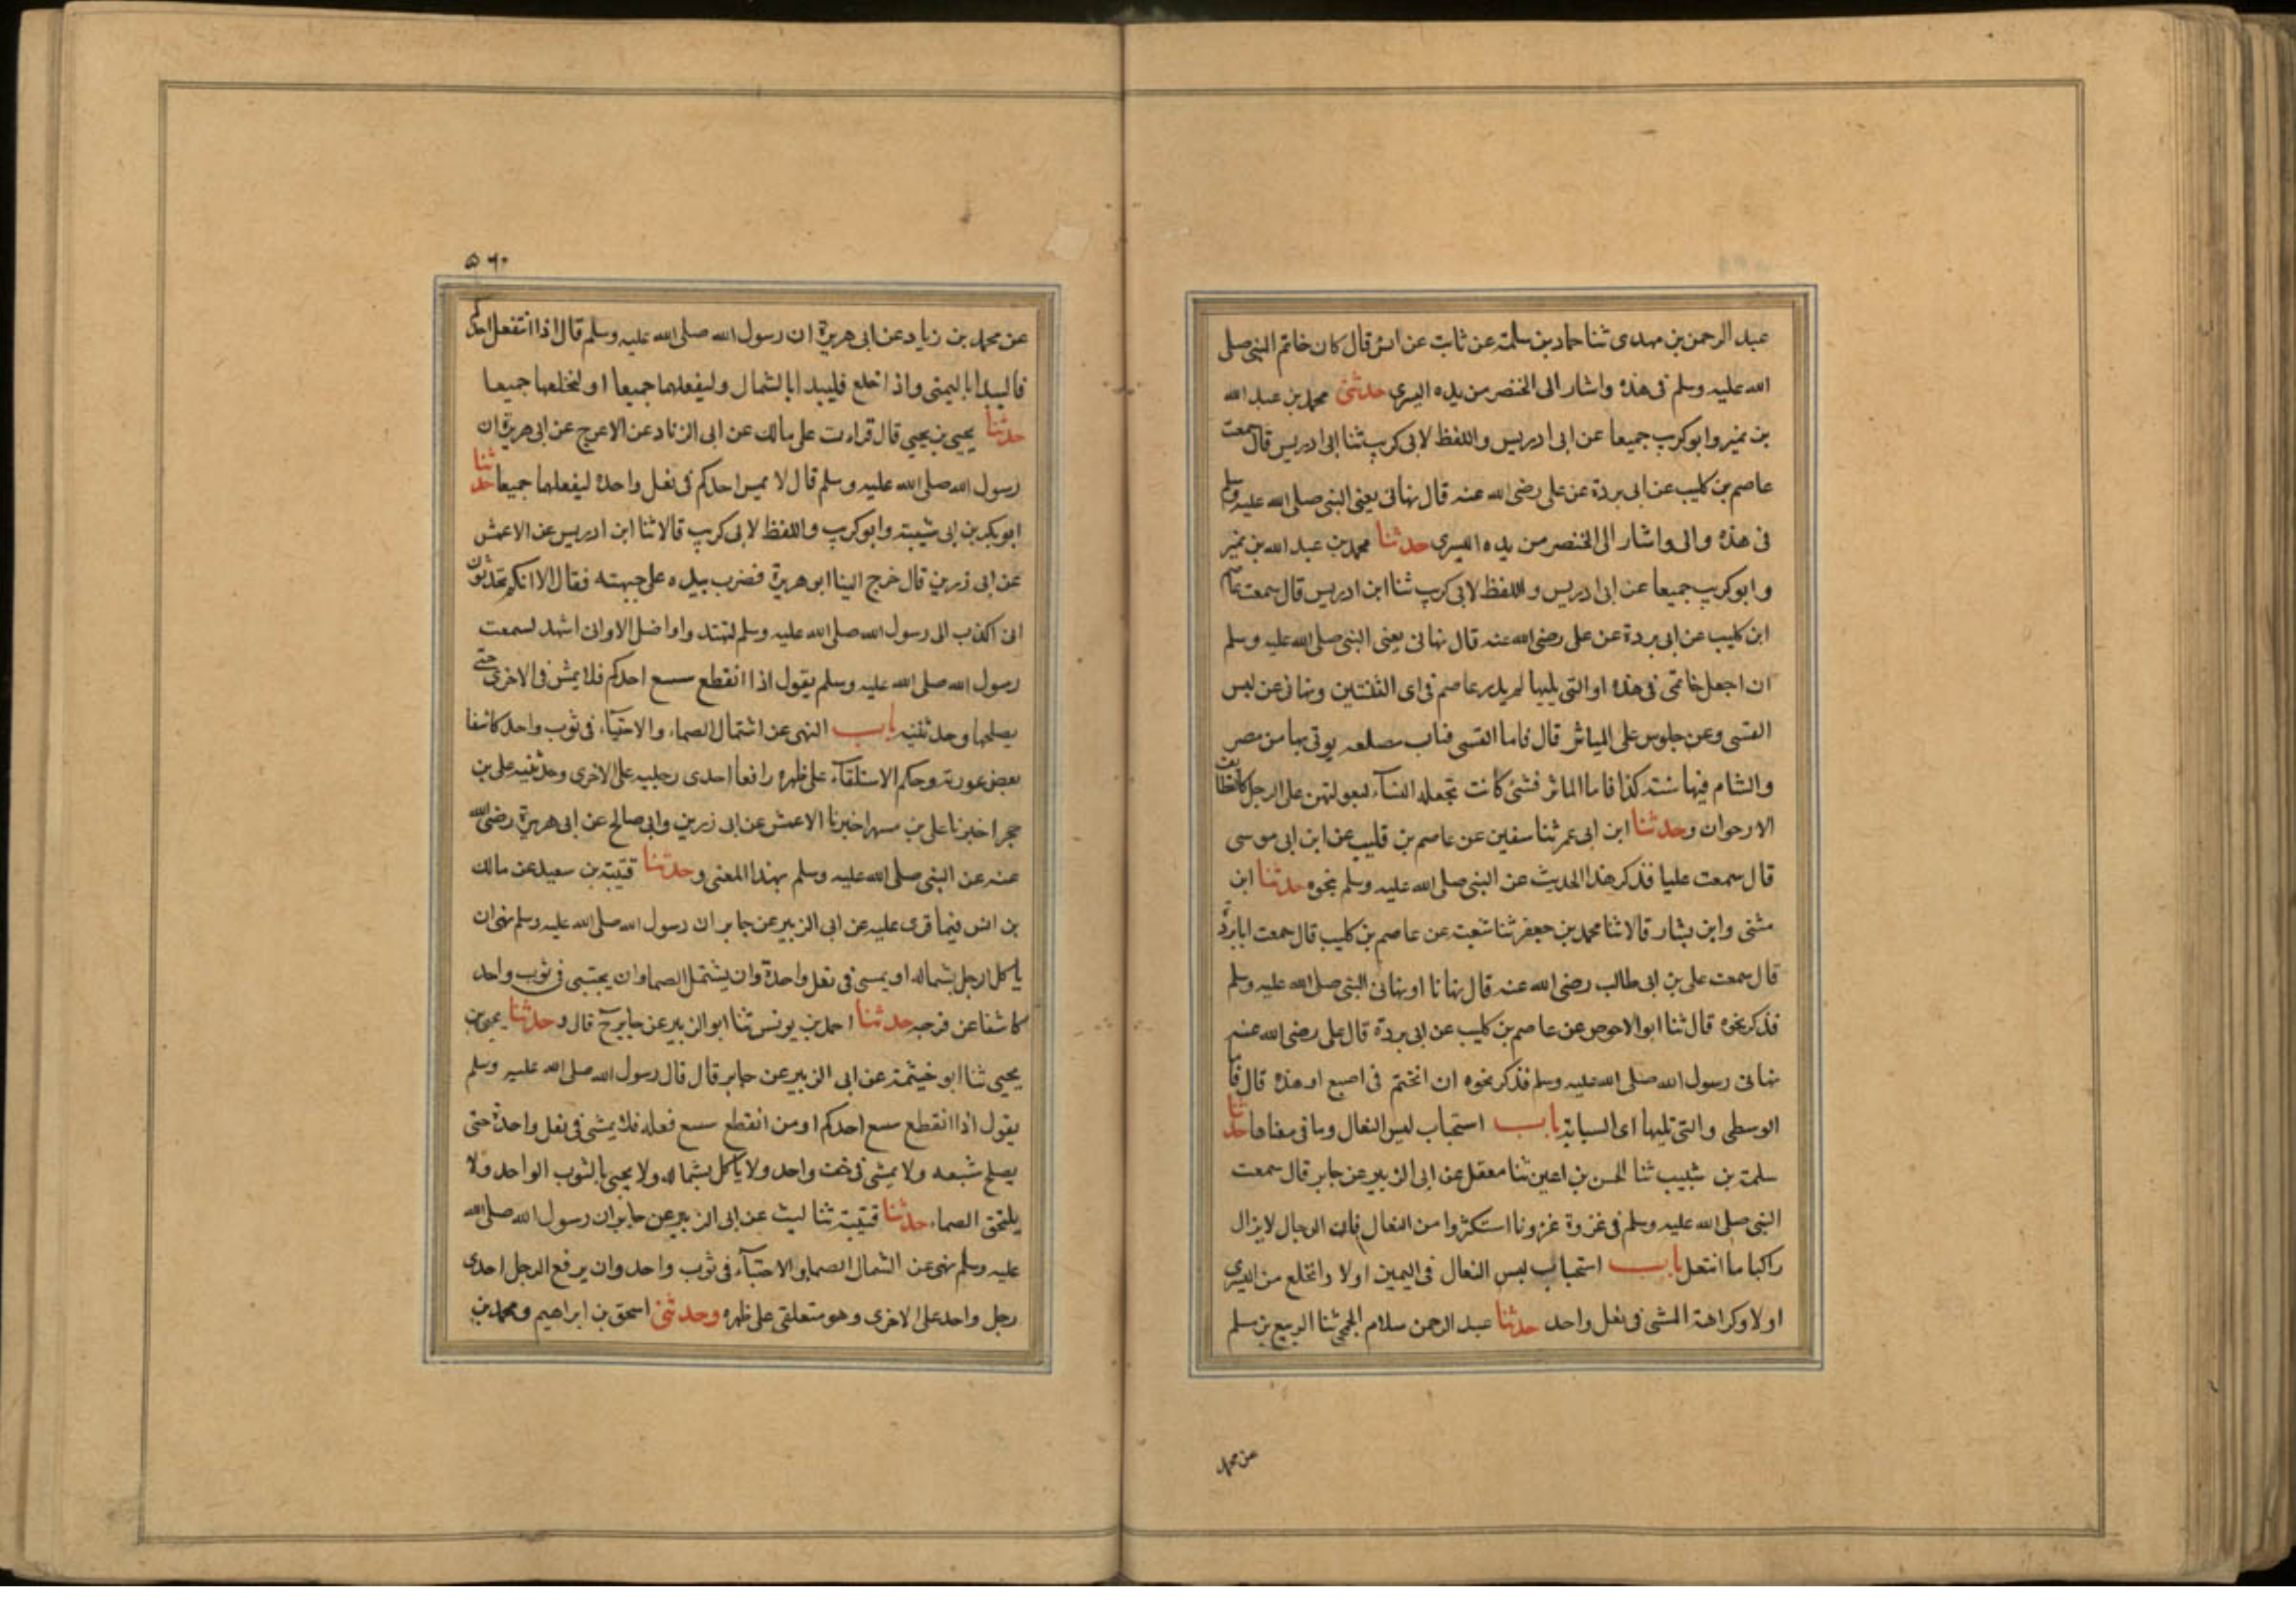 عبد الرحمن بن مهدى ثنا حماد بن سلمة عن ثابت عن انس قال كان خاتم النبى صلى
الله عليه وسلم فى هذه واشار الى الخنصر من يده اليسرى حدثنى محمد بن عبد الله
بن نمير وابو كريب جميعا عن ابى ادريس واللفظ لابى كريب ثنا ابى ادريس قال سمعت
عاصم بن كليب عن ابى بردة عن على رضى الله عنه قال نهانى يعنى النبى صلى الله عليه وسلم
فى هذه والى واشار الى الخنصر من يده اليسرى حدثنا محمد بن عبد الله بن نمير
وابو كريب جميعا عن ابى ادريس واللفظ لابى كريب ثنا ابن ادريس قال سمعت عاصم
ابن كليب عن ابى بردة عن على رضى الله عنه قال نهانى يعنى النبى صلى الله عليه وسلم
ان اجعل خاتمى فى هذه او التى يليها لم يدر عاصم فى اى الثنتين ونهانى عن لبس
القسى وعن جلوس على المياثر قال فاما القسى فثاب مضلعه يوتى بها من مصر
والشام فيها شبه كذا فاما الماثر فشئ كانت تجعله النسآء لبعولتهن على الرحل كالقطائف
الارجوان وحدثنا ابن ابى عمر ثنا سفين عن عاصم بن قليب عن ابن ابى موسى
قال سمعت عليا فذكر هذا الحديث عن النبى صلى الله عليه وسلم بنحوه حدثنا ابن
مثنى وابن بشار قالا ثنا محمد بن جعفر ثنا شعبة عن عاصم بن كليب قال سمعت ابا بردة
قال سمعت على بن ابى طالب رضى الله عنه قال نهانا او نهانى النبى صلى الله عليه وسلم
فذكر نحوه قال ثنا ابو الاحوص عن عاصم بن كليب عن ابى بردة قال على رضى الله عنه
نهانى رسول الله صلى الله عليه وسلم فذكر نحوه ان اتختم فى اصبع او هذه قال فاما
الوسطى والتى تليها اى السبابة باب استحباب لبس النعال وما فى معناها حدثنا
سلمة بن شبيب ثنا الحسن بن اعين ثنا معقل عن ابى الزبير عن جابر قال سمعت
النبى صلى الله عليه وسلم فى غزوة غزونا استكثروا من النعال فان الرجال لا يزال
راكبا ما انتعل باب استحباب لبس النعال فى اليمين اولا واتخلع من اليسرى
اولا وكراهة المشى فى نعل واحد حدثنا عبد الرحمن سلام الجمحى ثنا الربيع بن مسلم
عن محمد
۵۶۰
عن محمد بن زياد عن ابى هريرة ان رسول الله صلى الله عليه وسلم قال اذا انتفعل احدكم
فاليبدا باليمنى واذا خلع فليبدا بالشمال وليفعلهما جميعا او لنخلعها جميعا
حدثنا يحيى بن يحيى قال قراءت على مالك عن ابى الزناد عن الاعرج عن ابى هريرة ان
رسول الله صلى الله عليه وسلم قال لا يمس احدكم فى نعل واحدة ليفعلهما جميعا حدثنا
ابو بكر بن ابى شيبة وابو كريب واللفظ لابى كريب قالا ثنا ابن ادريس عن الاعمش
عن ابى زرين قال خرج الينا ابو هريرة فضرب بيده على جبهته فقال الا انكم تحدثون
انى اكذب الى رسول الله صلى الله عليه وسلم لتهتدوا واضل الا وانى اشهد لسمعت
رسول الله صلى الله عليه وسلم يقول اذا انقطع سسع احدكم فلا يمش فى الاخرى حتى
يصلحها وحدثنيه باب النهى عن اشتمال الصماء والاحتبآء فى ثوب واحد كاشفا
بعض عورته وحكم الاستلقآء على ظهره رافعا احدى رجليه على الاخرى وحدثنيه على بن
حجر اخبرنا على بن مسهر اخبرنا الاعمش عن ابى زرين وابى صالح عن ابى هريرة رضى الله
عنه عن النبى صلى الله عليه وسلم بهذا المعنى وحدثنا قتيبة بن سعيد عن مالك
بن انس فيما قرى عليه عن ابى الزبير عن جابر ان رسول الله صلى الله عليه وسلم نهى ان
ياكل الرجل بشماله او يمسى فى نعل واحدة وان يشتمل الصما وان يحتبى فى ثوب واحد
كاشفا عن فرجه حدثنا احمد بن يونس ثنا ابو الزبير عن جابر ح قال وحدثنا يحيى بن
يحيى ثنا ابو خيثمة عن ابى الزبير عن جابر قال قال رسول الله صلى الله عليه وسلم
يقول اذا انقطع سسع احدكم او من انقطع سسع فعله فلا يمشى فى نعل واحدة حتى
يصلح شسعه ولا يمشى فى خف واحد ولا ياكل بشماله ولا يحبى بالثوب الواحد ولا
يلتحق الصماء حدثنا قتيبة ثنا ليث عن ابى الزبير عن جابر ان رسول الله صلى الله
عليه وسلم نهى عن اشمال الصما والاحتبآء فى ثوب واحد وان يرفع الرجل احدى
رجل واحد على الاخرى وهو متعلقى على ظهره وحدثنى اسحق بن ابراهيم ومحمد بن